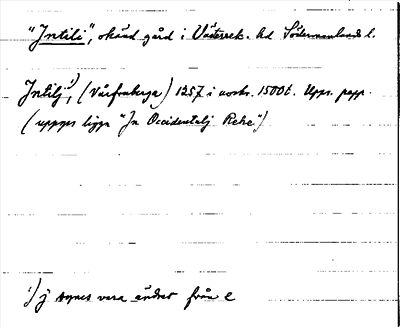 "Intili", okänd gård i Västerrek. hd Södermanlands l.
Intilj¹), (Vårfruberga) 1257 i avskr. 1500t. Upps. papp.
(uppges ligga "In Occidentalj Reke")
¹) j synes vara ändrat från e